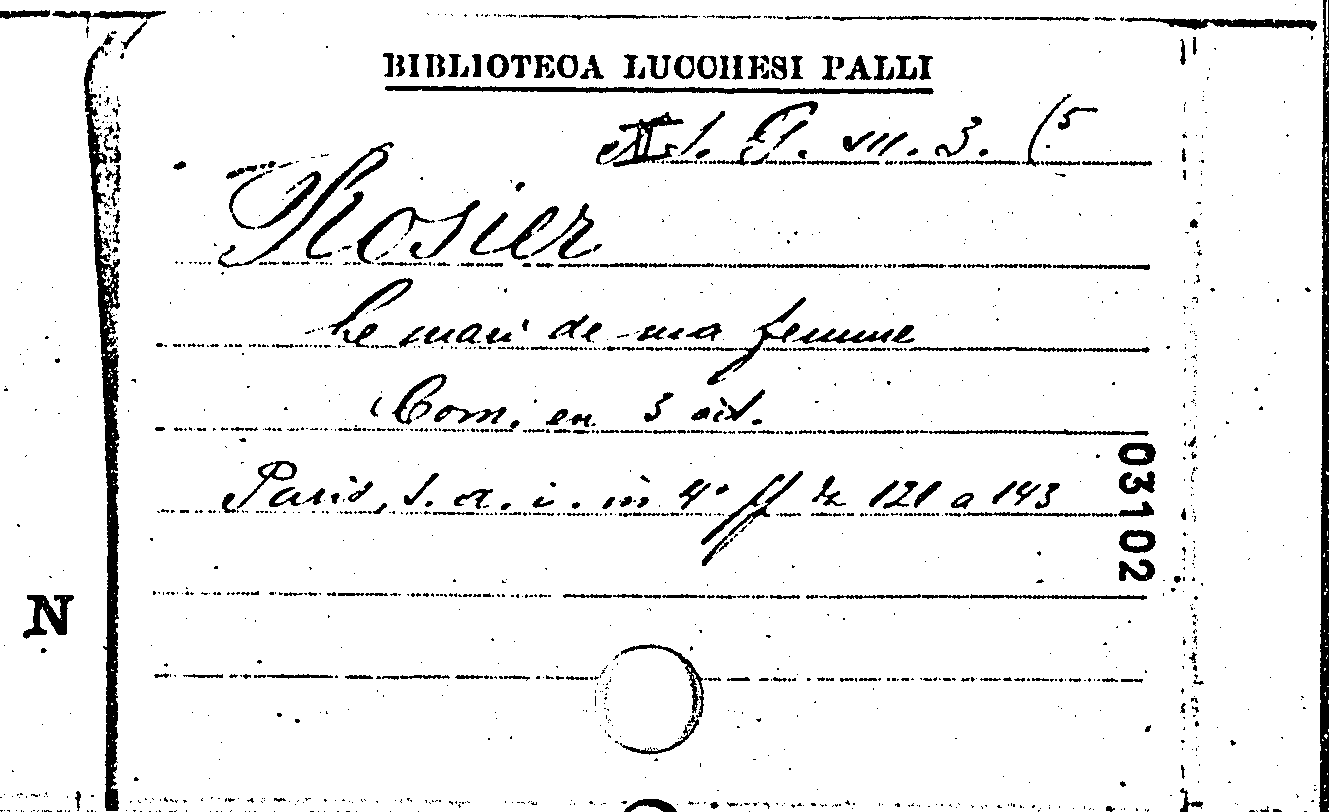 BIBLIOTECA LUCCHESI PALLI
P. VII. 3. (5
Rosier
Le mari de ma femme
Com. en 3 act.
Paris, s. a. i. in 4° ff da 121 a 143
03102
N